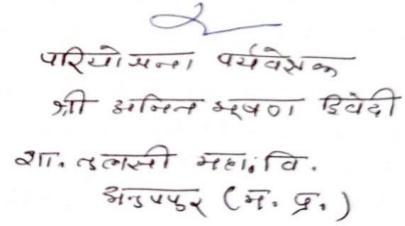 परियोजना पर्यवेक्षक
श्री अमित भूषण द्विवेदी
शा. तुलसी महा. वि.
अनूपपुर (म. प्र.)